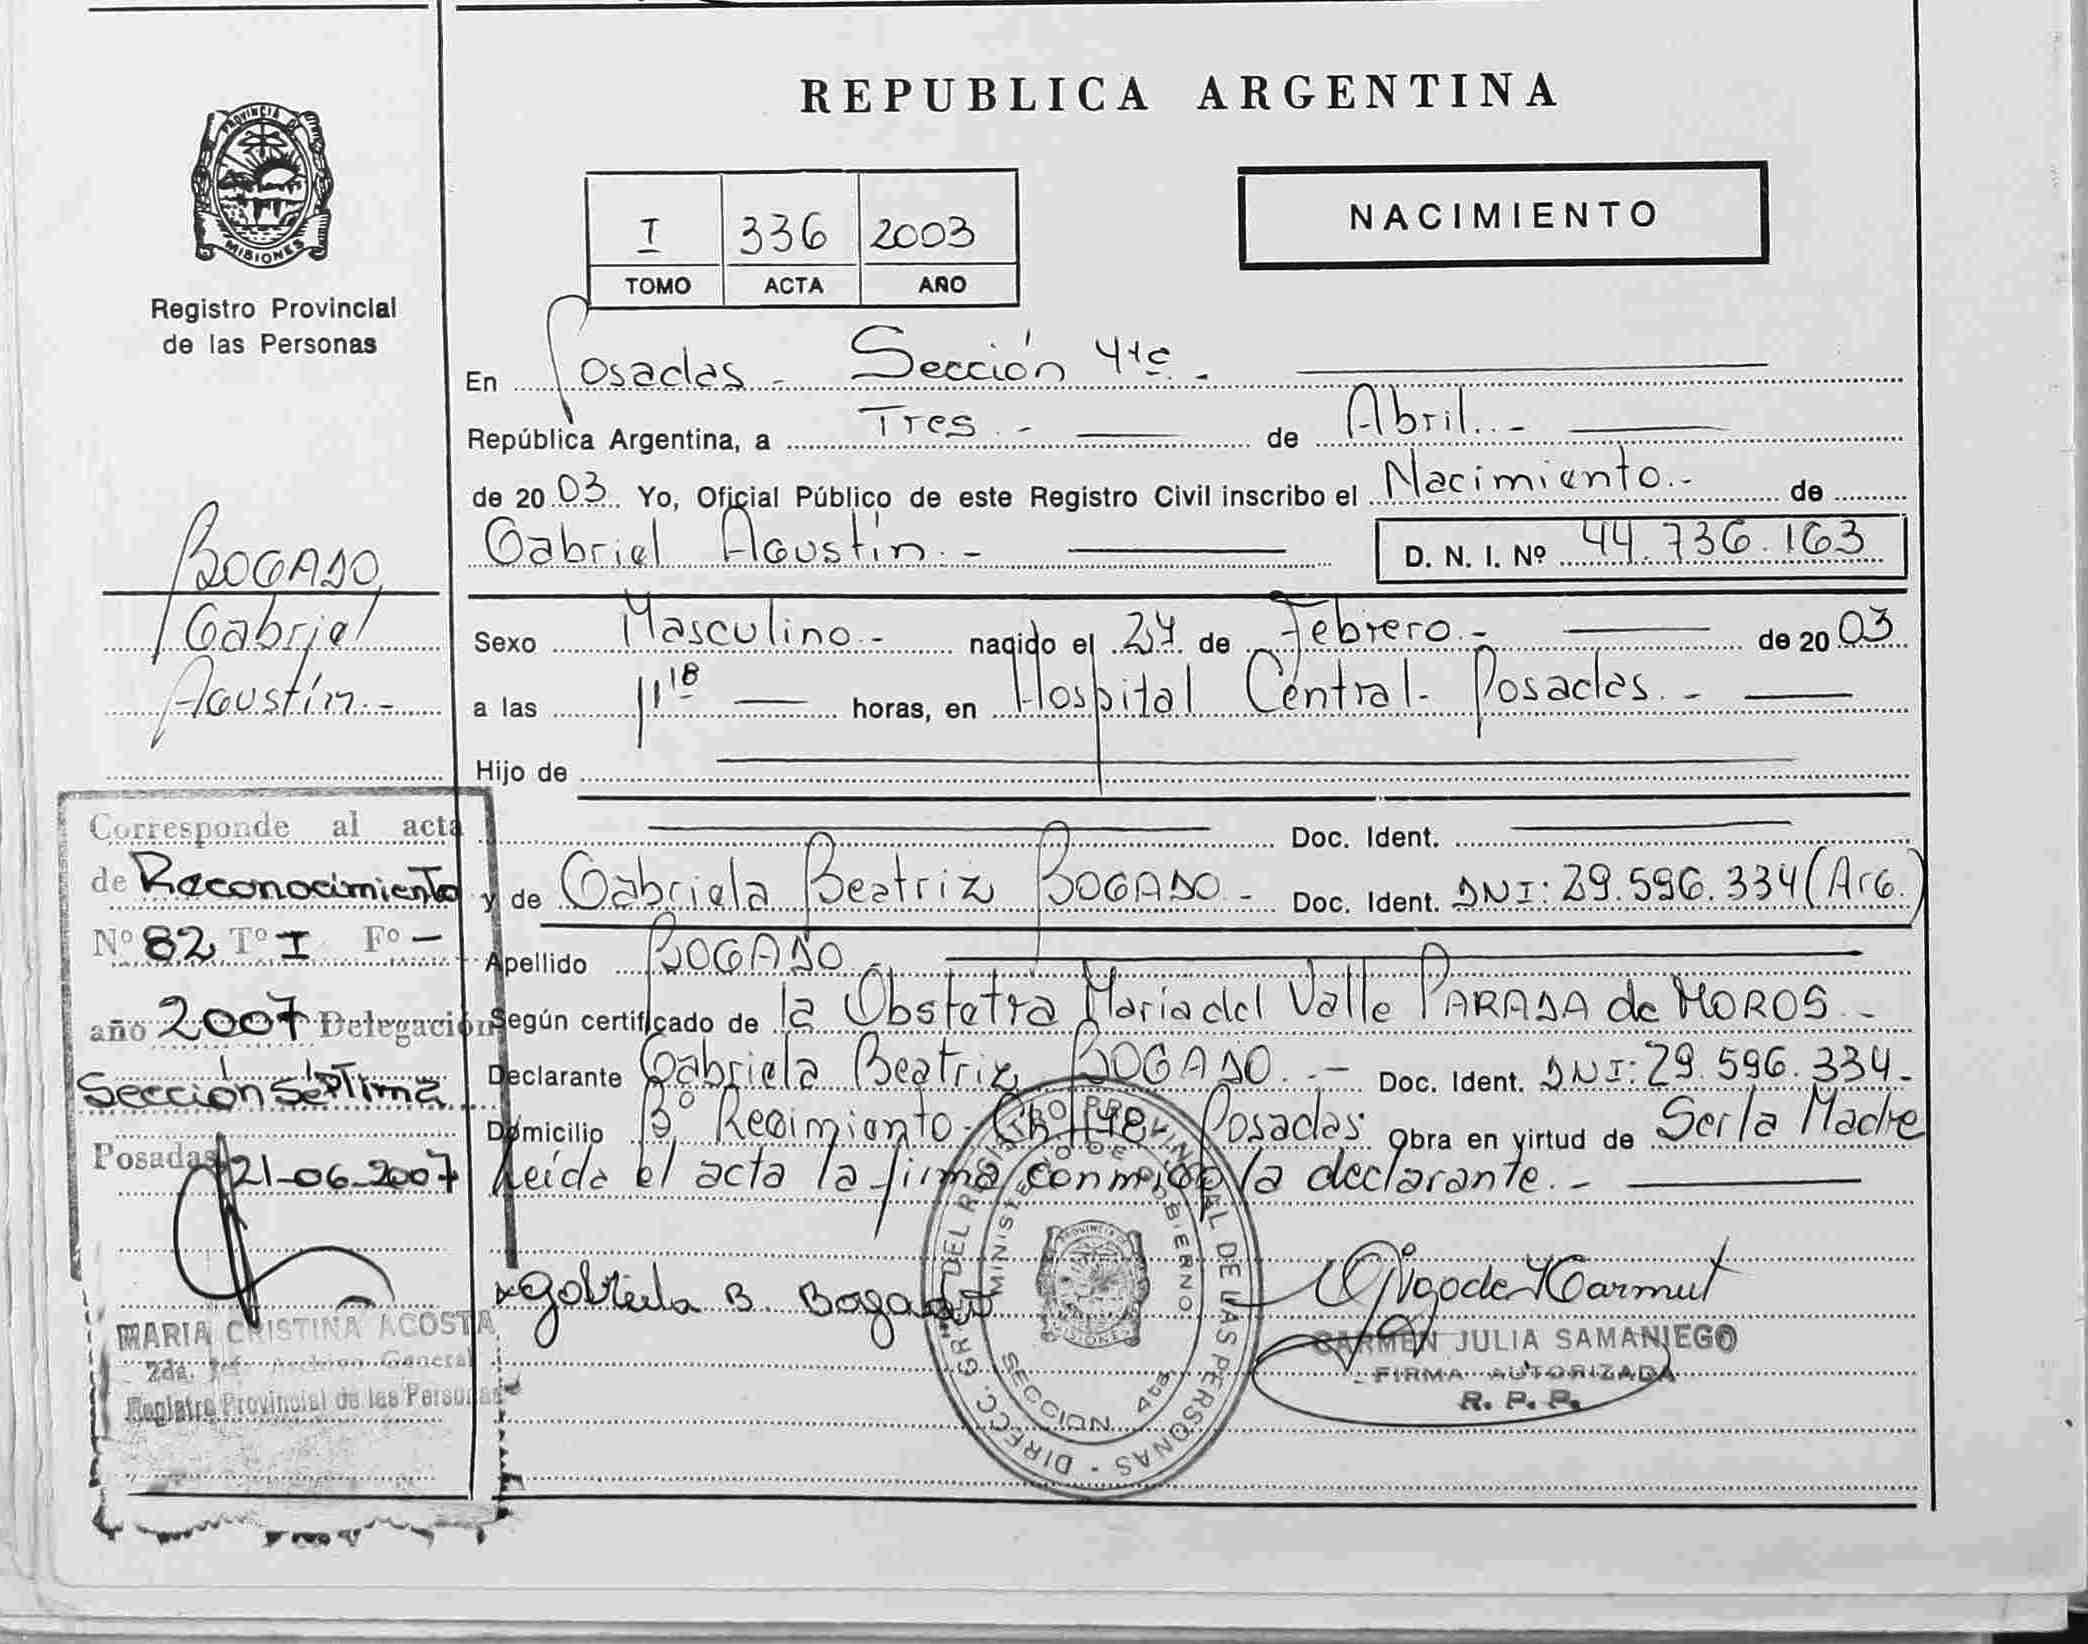 REPUBLICA ARGENTINA
PROVINCIA DE MISIONES
Registro Provincial
de las Personas
I 336 2003
TOMO ACTA AÑO
NACIMIENTO
En Posadas - Sección 4ta. -
República Argentina, a Tres. - de Abril. -
de 2003. Yo, Oficial Público de este Registro Civil inscribo el Nacimiento. - de
Gabriel Agustín. - D. N. I. Nº 44.736.163
BOGADO,
Gabriel
Agustín. -
Sexo Masculino. - nacido el 27 de Febrero. - de 2003
a las 11 18 horas, en Hospital Central - Posadas. -
Hijo de
Doc. Ident.
y de Gabriela Beatriz BOGADO. - Doc. Ident. DNI: 29.596.334 (Arg.)
Apellido BOGADO. -
Según certificado de la Obstetra Maria del Valle PARADA de MOROS -
Declarante Gabriela Beatriz BOGADO. - Doc. Ident. DNI: 29.596.334 -
Domicilio Bº Regimiento - Ch 148 - Posadas. Obra en virtud de Ser la Madre
Leída el acta la firma conmigo la declarante. -
Corresponde al acta
de Reconocimiento
Nº 82 Tº I Fº -
año 2007 Delegación
Sección Séptima
Posadas 21-06-2007
MARIA CRISTINA ACOSTA
2da. Jef. Archivo General
Registro Provincial de las Personas
x Gabriela B. Bogado
DIRECC. GRAL. DEL REGISTRO PROVINCIAL DE LAS PERSONAS -
MINISTERIO DE GOBIERNO
SECCION 4ta.
CARMEN JULIA SAMANIEGO
FIRMA AUTORIZADA
R. P. P.